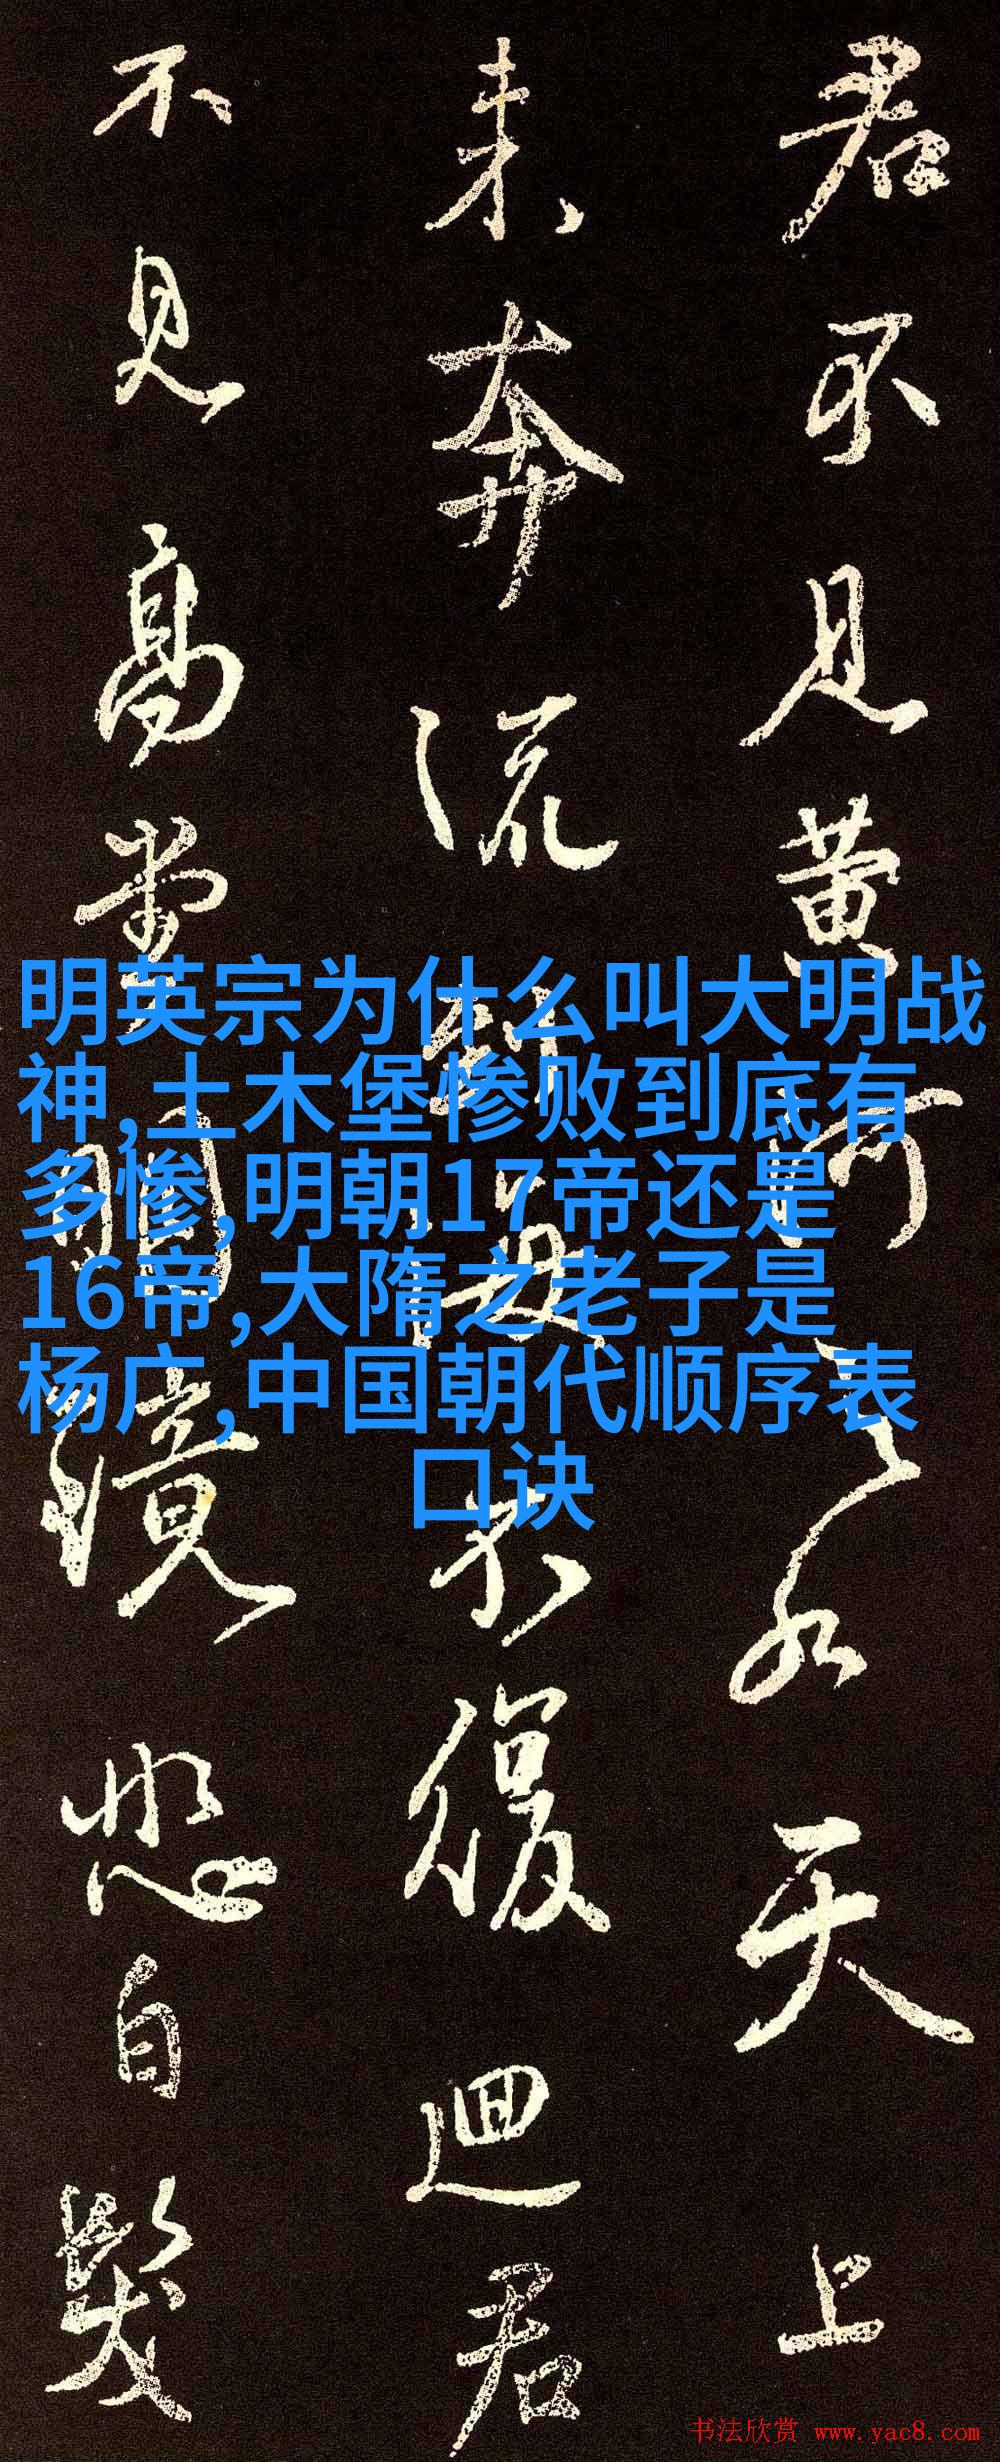 君不见黄河之水天上
来奔流到海不復迴君
不见高堂明镜悲白髮
明英宗为什么叫大明战
神,土木堡惨败到底有
多惨,明朝17帝还是
16帝,大隋之老子是
杨广,中国朝代顺序表
口诀
书法欣赏 www.yac8.com